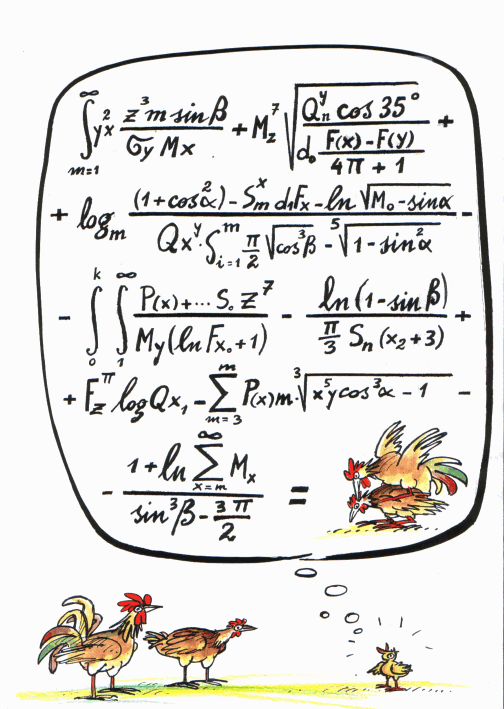 ∫_{m=1}^{∞} yx² (z³ m sin β)/(σy Mx) + M_z⁷ √((Q_n^y cos 35°)/(d₀ (F(x) − F(y))/(4π + 1))) +
+ log_m ((1+cos²α) − S_m^x d₁Fx − ln √(M₀ − sinα))/(Qx^y · S_{i=1}^m π/2 √(cos³β) − ⁵√(1 − sin²α)) −
− ∫_0^k ∫_1^∞ (P(x) + ... S₀ z⁷)/(My (ln Fx₀ + 1)) − (ln (1 − sin β))/(π/3 S_n (x₂ + 3)) +
+ F_z^π log Qx₁ − ∑_{m=3}^m P(x)m · ³√(x⁵y cos³α − 1) −
− (1 + ln ∑_{x=m}^∞ M_x)/(sin³β − 3π/2) =